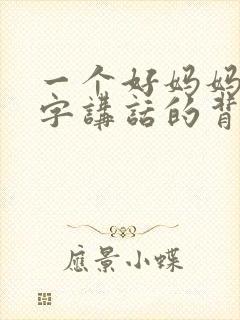 一个好妈妈
字講話的背
應景小蝶